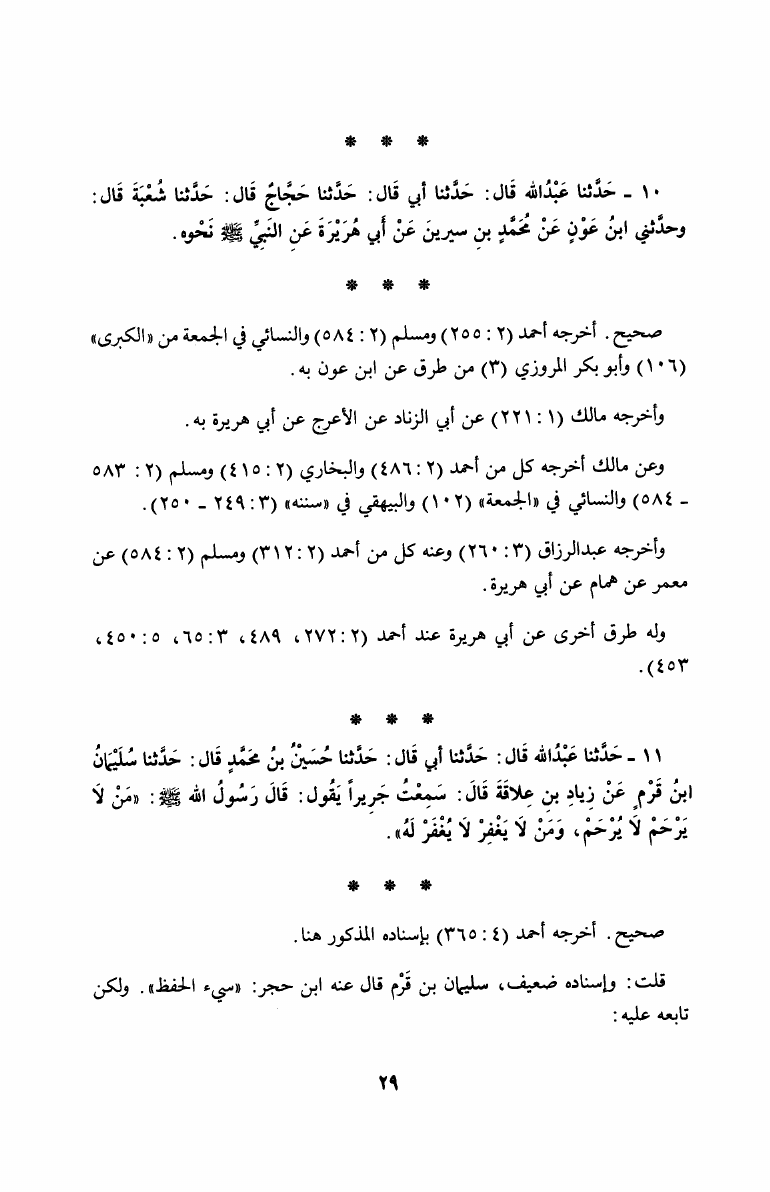 * * *
١٠ - حَدَّثنا عَبْدُالله قَال: حَدَّثنا أبي قَال: حَدَّثنا حَجَّاجٌ قَال: حَدَّثنا شُعْبَةَ قَال:
وحدَّثني ابنُ عَوْنٍ عَنْ مُحَمَّدٍ بنِ سيرينَ عَنْ أَبي هُرَيْرَةَ عَنِ النَبِيِّ ﷺ نَحْوه.
* * *
صحيح. أخرجه أحمد (٢: ٢٥٥) ومسلم (٢: ٥٨٤) والنسائي في الجمعة من «الكبرى»
(١٠٦) وأبو بكر المروزي (٣) من طرق عن ابن عون به.
وأخرجه مالك (١: ٢٢١) عن أبي الزناد عن الأعرج عن أبي هريرة به.
وعن مالك أخرجه كل من أحمد (٢: ٤٨٦) والبخاري (٢: ٤١٥) ومسلم (٢: ٥٨٣
- ٥٨٤) والنسائي في «الجمعة» (١٠٢) والبيهقي في «سننه» (٣: ٢٤٩ - ٢٥٠).
وأخرجه عبدالرزاق (٣: ٢٦٠) وعنه كل من أحمد (٢: ٣١٢) ومسلم (٢: ٥٨٤) عن
معمر عن همام عن أبي هريرة.
وله طرق أخرى عن أبي هريرة عند أحمد (٢: ٢٧٢، ٤٨٩، ٣: ٦٥، ٥: ٤٥٠،
٤٥٣).
* * *
١١ - حَدَّثنا عَبْدُالله قَال: حَدَّثنا أبي قَال: حَدَّثنا حُسَيْنُ بنُ محَمَّدٍ قَال: حَدَّثنا سُلَيْمَانُ
ابنُ قَرْمٍ عَنْ زِيادِ بنِ عِلاقَةَ قَالَ: سَمِعْتُ جَرِيراً يَقُول: قَالَ رَسُولُ الله ﷺ: «مَنْ لَا
يَرْحَمْ لَا يُرْحَمْ، وَمَنْ لَا يَغْفِرْ لَا يُغْفَرْ لَهُ».
* * *
صحيح. أخرجه أحمد (٤: ٣٦٥) بإسناده المذكور هنا.
قلت: وإسناده ضعيف، سليمان بن قَرْم قال عنه ابن حجر: «سيء الحفظ». ولكن
تابعه عليه:
٢٩